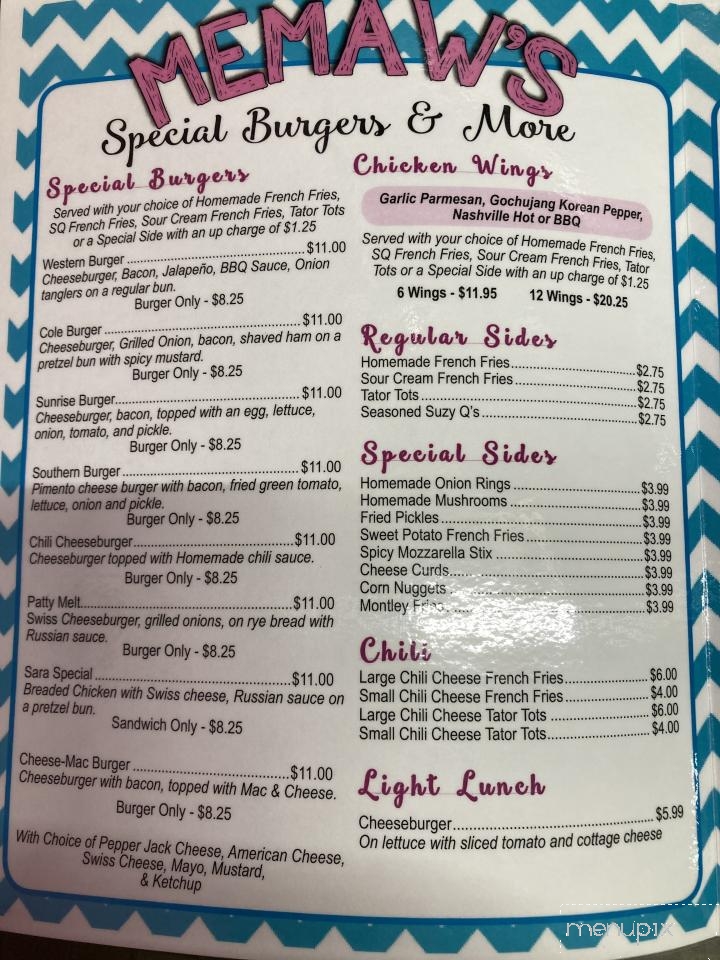 MEMAW'S
Special Burgers & More
Special Burgers
Served with your choice of Homemade French Fries,
SQ French Fries, Sour Cream French Fries, Tator Tots
or a Special Side with an up charge of $1.25
Western Burger ........ $11.00
Cheeseburger, Bacon, Jalapeño, BBQ Sauce, Onion
tanglers on a regular bun.
Burger Only - $8.25
Cole Burger ........ $11.00
Cheeseburger, Grilled Onion, bacon, shaved ham on a
pretzel bun with spicy mustard.
Burger Only - $8.25
Sunrise Burger........ $11.00
Cheeseburger, bacon, topped with an egg, lettuce,
onion, tomato, and pickle.
Burger Only - $8.25
Southern Burger ........ $11.00
Pimento cheese burger with bacon, fried green tomato,
lettuce, onion and pickle.
Burger Only - $8.25
Chili Cheeseburger........ $11.00
Cheeseburger topped with Homemade chili sauce.
Burger Only - $8.25
Patty Melt........ $11.00
Swiss Cheeseburger, grilled onions, on rye bread with
Russian sauce.
Burger Only - $8.25
Sara Special ........ $11.00
Breaded Chicken with Swiss cheese, Russian sauce on
a pretzel bun.
Sandwich Only - $8.25
Cheese-Mac Burger ........ $11.00
Cheeseburger with bacon, topped with Mac & Cheese.
Burger Only - $8.25
With Choice of Pepper Jack Cheese, American Cheese,
Swiss Cheese, Mayo, Mustard,
& Ketchup
Chicken Wings
Garlic Parmesan, Gochujang Korean Pepper,
Nashville Hot or BBQ
Served with your choice of Homemade French Fries,
SQ French Fries, Sour Cream French Fries, Tator
Tots or a Special Side with an up charge of $1.25
6 Wings - $11.95 12 Wings - $20.25
Regular Sides
Homemade French Fries........ $2.75
Sour Cream French Fries........ $2.75
Tator Tots ........ $2.75
Seasoned Suzy Q's ........ $2.75
Special Sides
Homemade Onion Rings ........ $3.99
Homemade Mushrooms ........ $3.99
Fried Pickles ........ $3.99
Sweet Potato French Fries........ $3.99
Spicy Mozzarella Stix ........ $3.99
Cheese Curds........ $3.99
Corn Nuggets ........ $3.99
Montley Fries ........ $3.99
Chili
Large Chili Cheese French Fries........ $6.00
Small Chili Cheese French Fries........ $4.00
Large Chili Cheese Tator Tots ........ $6.00
Small Chili Cheese Tator Tots........ $4.00
Light Lunch
Cheeseburger........ $5.99
On lettuce with sliced tomato and cottage cheese
menupix